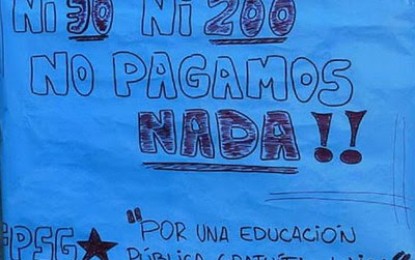 NI 30 NI 200
NO PAGAMOS
NADA!!
"POR UNA EDUCACION
PSG★ PÚBLICA GRATUÍTA